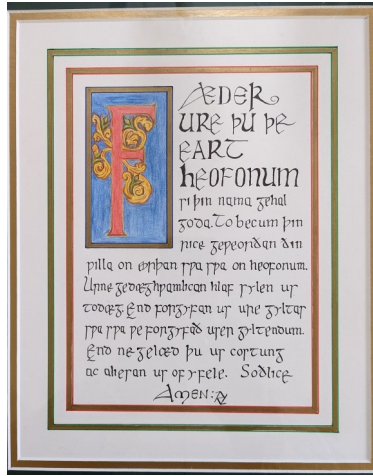 FÆDER
URE ÞU ÞE
EART
HEOFONUM
si þin nama gehal
goda. To becum þin
rice geƿeordan ðin
ƿilla on erþan sƿa sƿa on heofonum.
Urne gedæghƿamlican hlaf sylen us
todæg. End forgyfan us ure gyltas
sƿa sƿa ƿe forgyfað uren gyltendum.
End ne gelæd þu us costung
ac alesan us of yfele. Sodlice
AMEN: